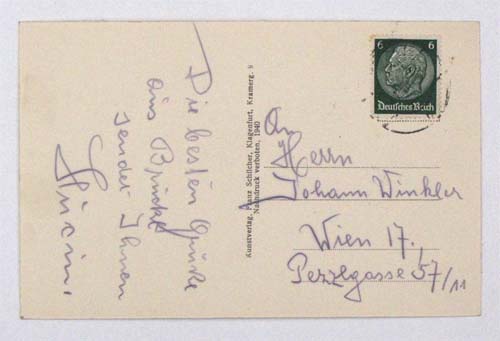 Die besten Grüße
aus Brückl
sendet Ihnen
Kunstverlag Franz Schilcher, Klagenfurt, Kramerg. 9
Nachdruck verboten, 1940
6 6
Deutsches Reich
An
Herrn
Johann Winkler
Wien 17.,
Pezzlgasse 57/11